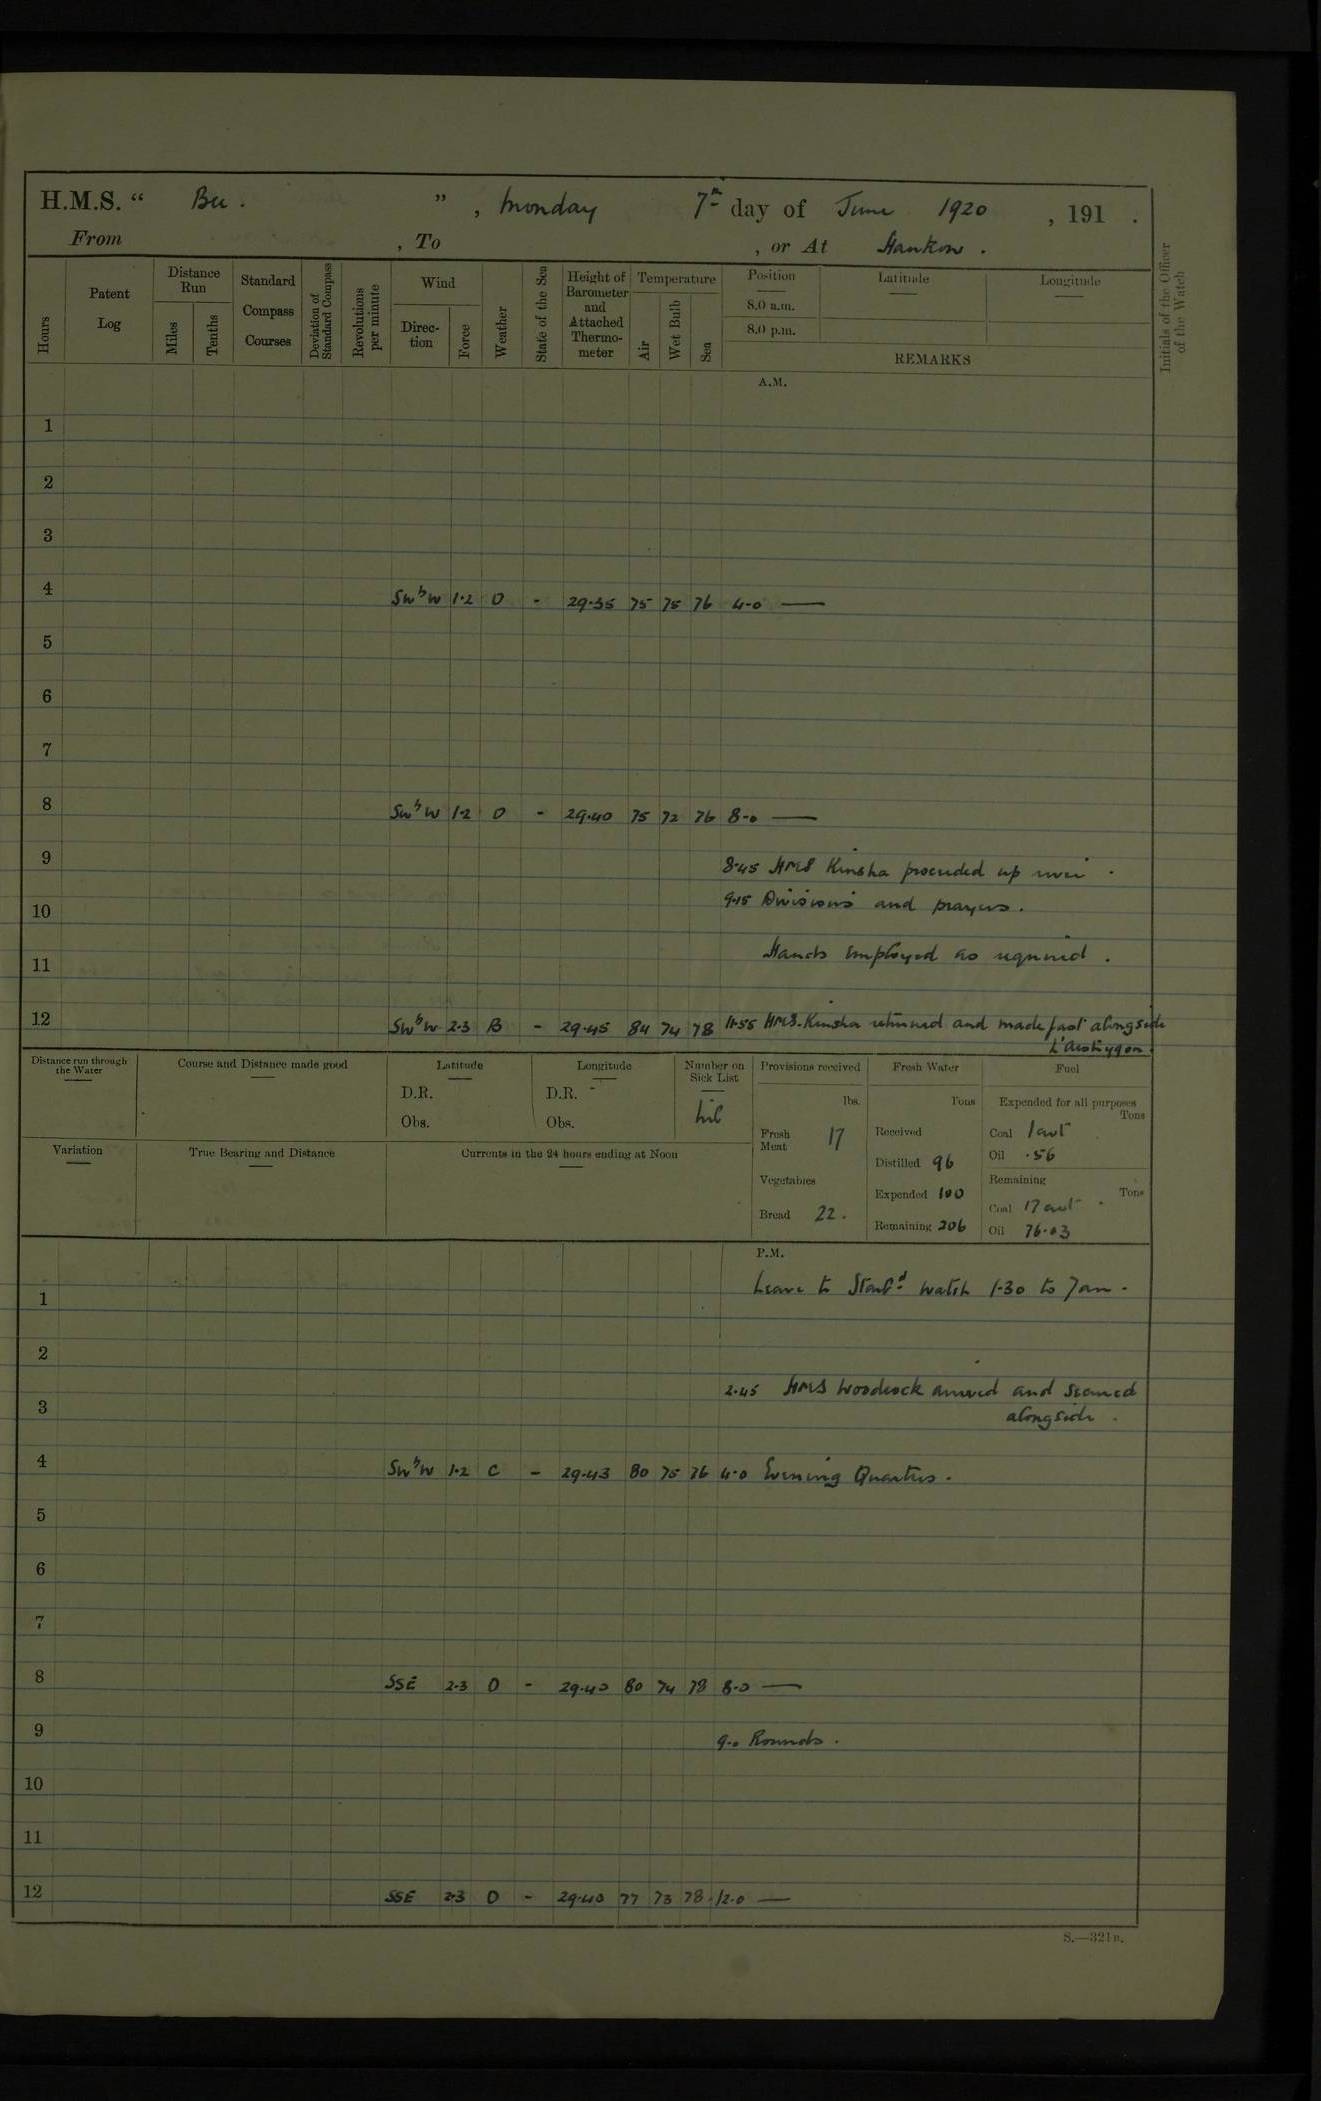 H.M.S. “ Bee . ” , Monday 7th day of June 1920 , 191 .
From , To , or At Hankow .
Hours
Patent Log
Distance Run
Miles
Tenths
Standard Compass Courses
Deviation of Standard Compass
Revolutions per minute
Wind
Direc-tion
Force
Weather
State of the Sea
Height of Barometer and Attached Thermo-meter
Temperature
Air
Wet Bulb
Sea
Position
8.0 a.m.
8.0 p.m.
Latitude
Longitude
REMARKS
Initials of the Officer of the Watch
A.M.
1
2
3
4 SWbW 1·2 O - 29·35 75 75 76 4-0 —
5
6
7
8 SWbW 1·2 O - 29·40 75 72 76 8-0 —
9 8·45 HMS Kinsha proceeded up river .
10 9·15 Divisions and prayers .
11 Hands employed as required .
12 SWbW 2·3 B - 29·45 84 74 78 11·55 HMS. Kinsha returned and made fast alongside
Distance run through the Water
Course and Distance made good
Latitude
D.R.
Obs.
Longitude
D.R. -
Obs.
Number on Sick List
Nil
Provisions received
lbs.
Fresh Meat 17
Vegetables
Bread 22 .
Fresh Water
Tons
Received
Distilled 96
Expended 100
Remaining 206
Fuel
Expended for all purposes
Tons
Coal 1 cwt
Oil ·56
Remaining
Tons
Coal 17 cwt
Oil 76·03
Variation
True Bearing and Distance
Currents in the 24 hours ending at Noon
P.M.
1 Leave to Starbd watch 1-30 to 7am .
2
3 2·45 HMS Woodcock arrived and secured
alongside .
4 SWbW 1·2 C - 29·43 80 75 76 4-0 Evening Quarters .
5
6
7
8 SSE 2·3 O - 29·40 80 74 78 8-0 —
9 9-0 Rounds .
10
11
12 SSE 2·3 O - 29·40 77 73 78 12-0 —
S.—321B.